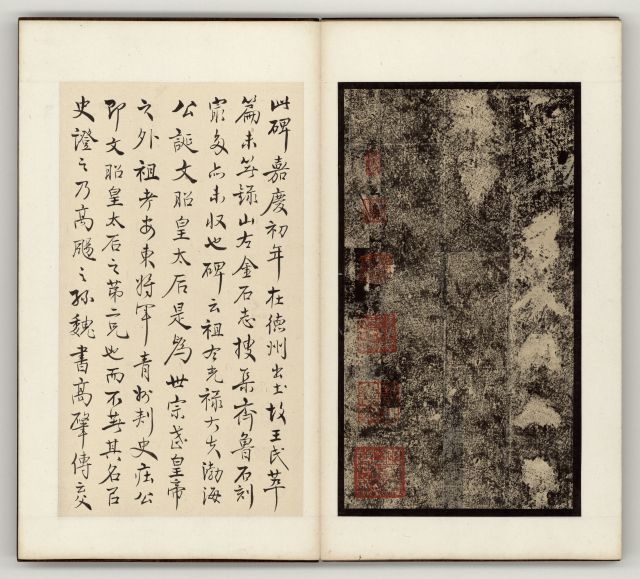 此碑嘉慶初年在德州出土故王氏萃
篇未著錄山左金石志搜集齊魯石刻
最多亦未收也碑云祖左光祿大夫渤海
公誕文昭皇太后是為世宗武皇帝
之外祖考安東將軍青州刺史莊公
即文昭皇太后之第二兄也而不著其名以
史證之乃高颺之孫魏書高肇傳